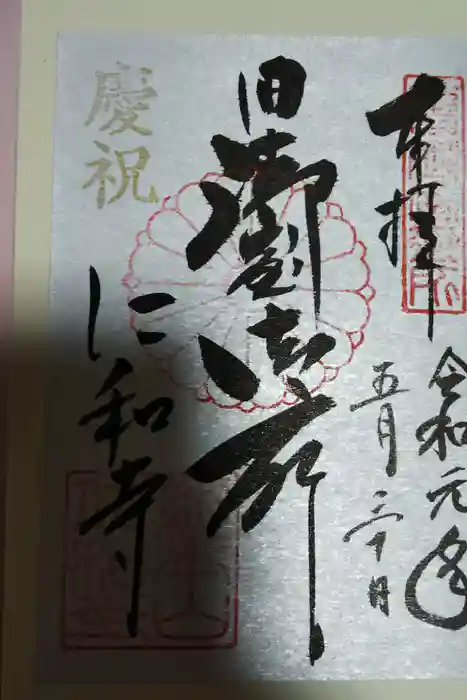 奉拝
令和元年
五月 十日
旧御室御所
仁和寺
慶祝